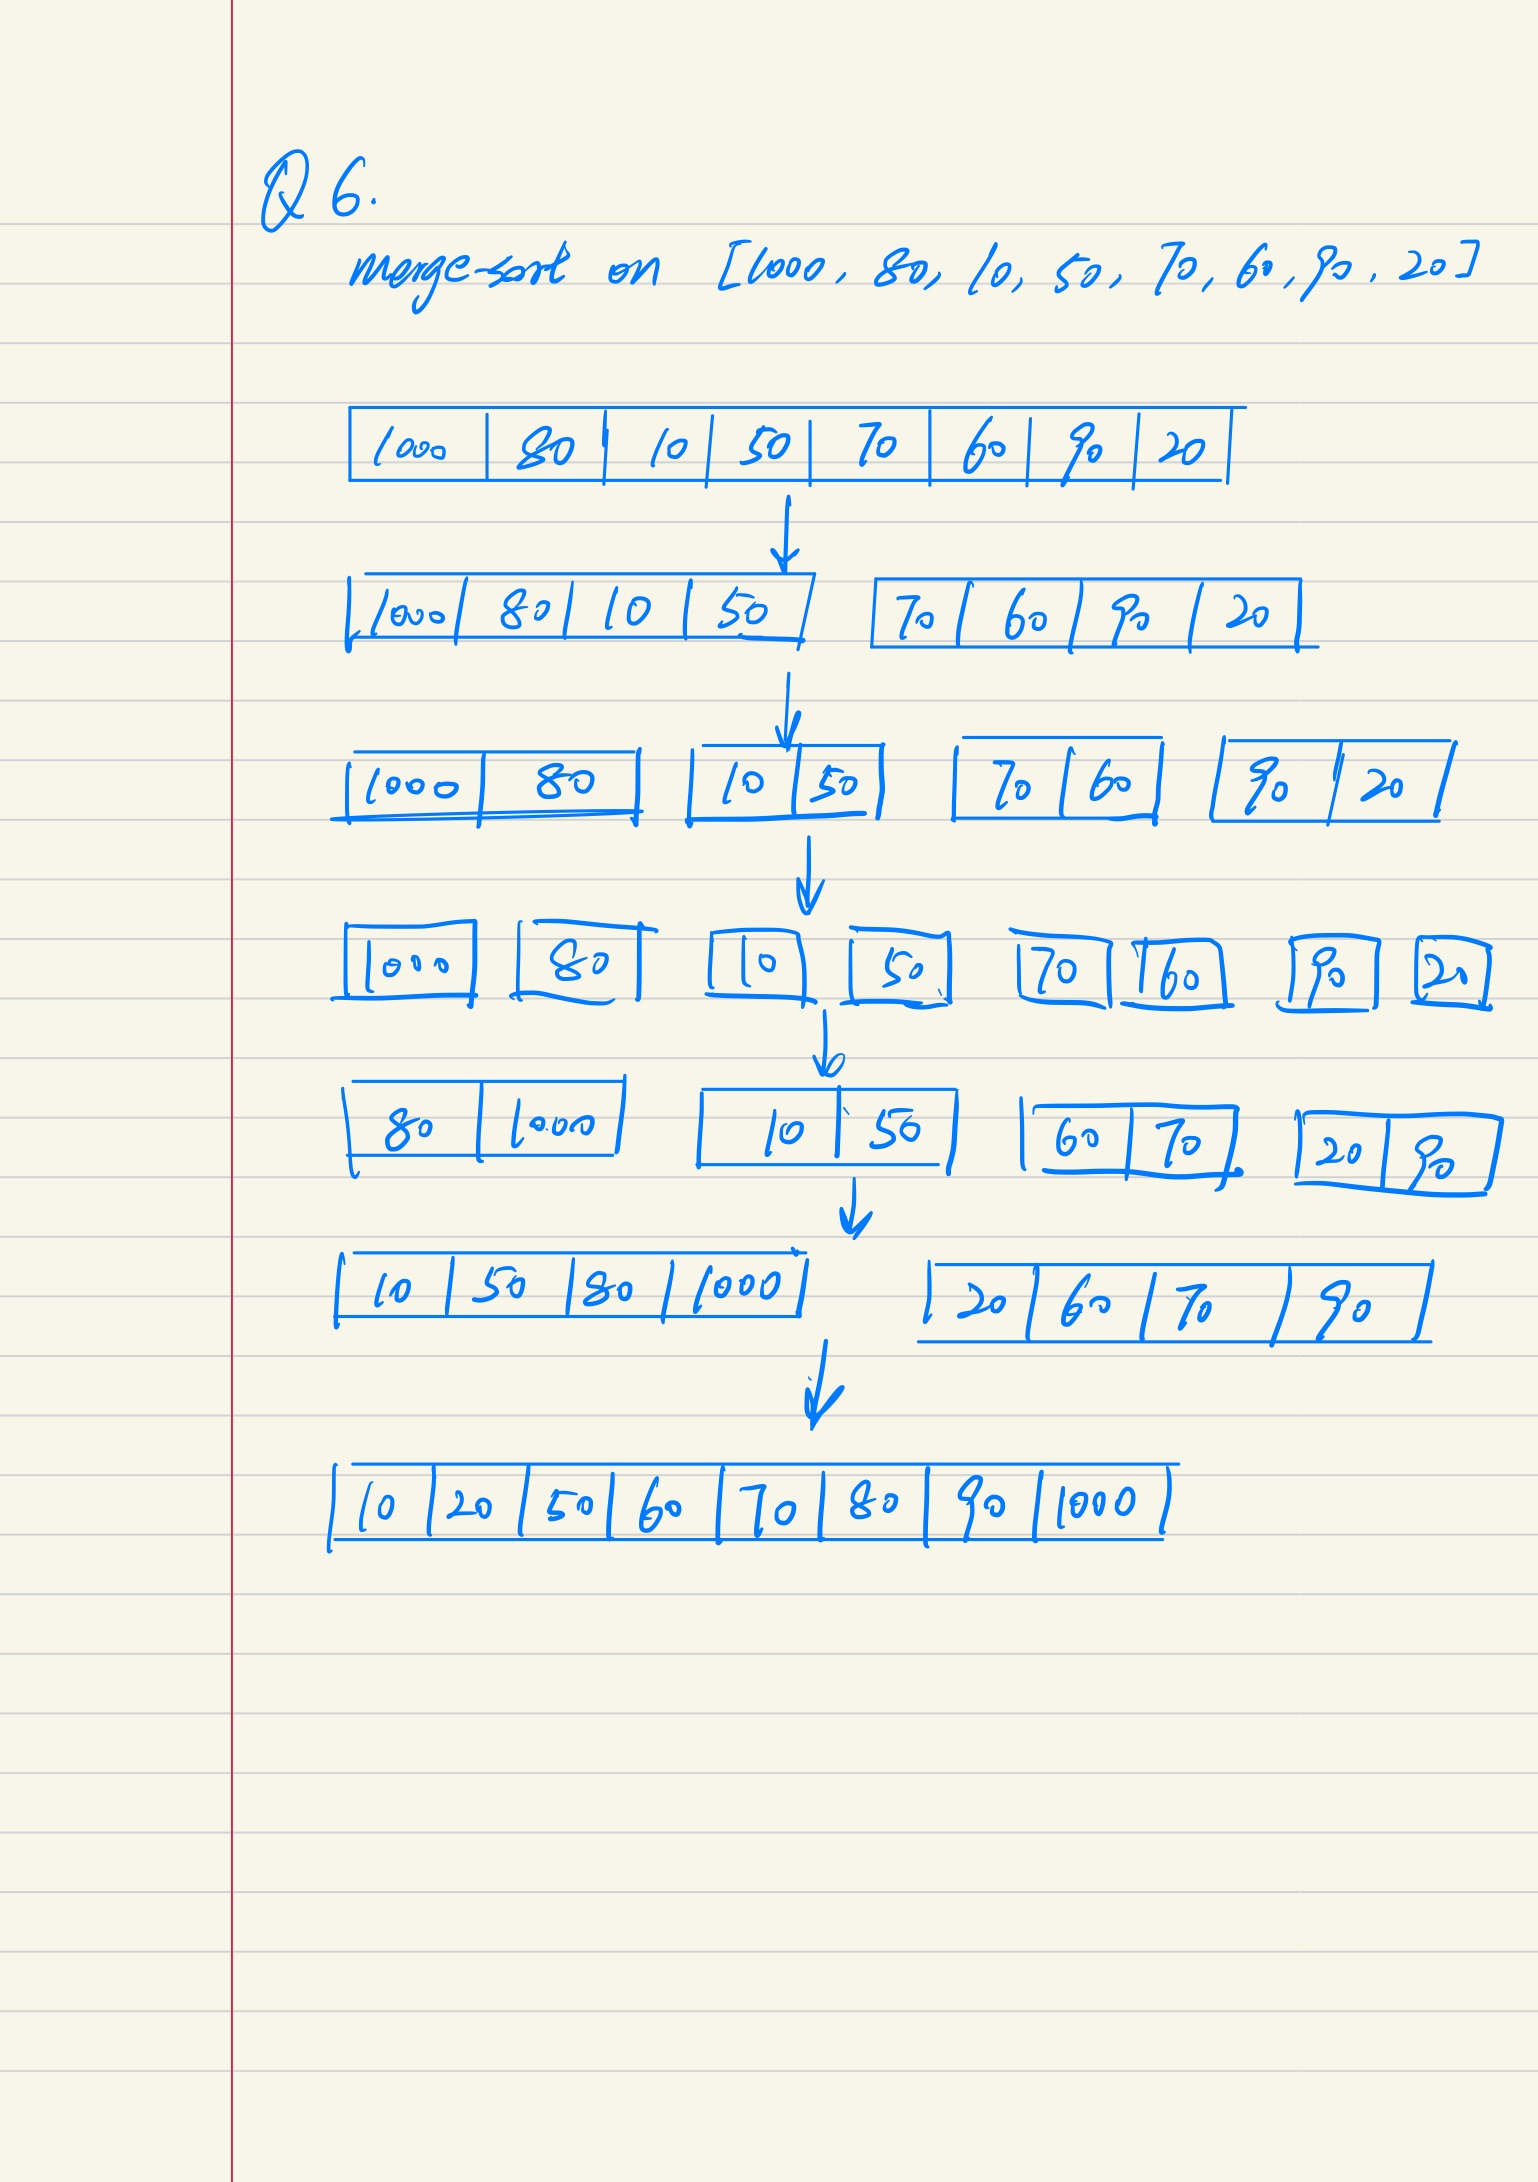 Q 6.
merge-sort on [1000, 80, 10, 50, 70, 60, 90, 20]
1000 80 10 50 70 60 90 20
1000 80 10 50 70 60 90 20
1000 80 10 50 70 60 90 20
1000 80 10 50 70 60 90 20
80 1000 10 50 60 70 20 90
10 50 80 1000 20 60 70 90
10 20 50 60 70 80 90 1000